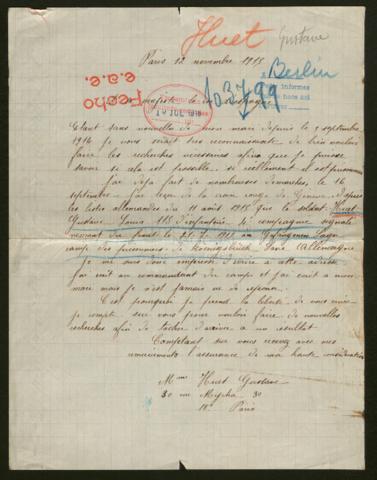 Huet Gustave
Paris 12 novembre 1915
Berlin
Fecho
e.a.e.
103799
informes
Sa majesté le roi
Etant sans nouvelle de mon mari depuis le 9 septembre
1914 je vous serait très reconnaissante de bien vouloir
faire les recherches necessaires afin que je puisse
savoir si cela est possible, si reellement il est prisonnier
J'ai déja fait de nombreuses demarches, le 16
septembre j'ai reçu de la croix rouge de Genève d'après
les listes allemandes du 14 août 1915 que le soldat Huet
Gustave Louis 115 d'infanterie 4e compagnie
camp des prisonniers de Königsbrück Saxe (Allemagne
je me suis donc empressé d'écrire a cette adresse
j'ai écrit au commandant du camp et j'ai écrit a mon
mari mais je n'ai jamais eu de reponse.
C'est pourquoi je prend la liberté de vous écrire
je compte sur vous pour vouloir faire de nouvelles
recherches afin de tâcher d'arriver a un resultat.
Comptant sur vous recevez avec mes
remerciements l'assurance de ma haute considération
Mme Huet Gustave
30 rue Myrha 30
18e Paris